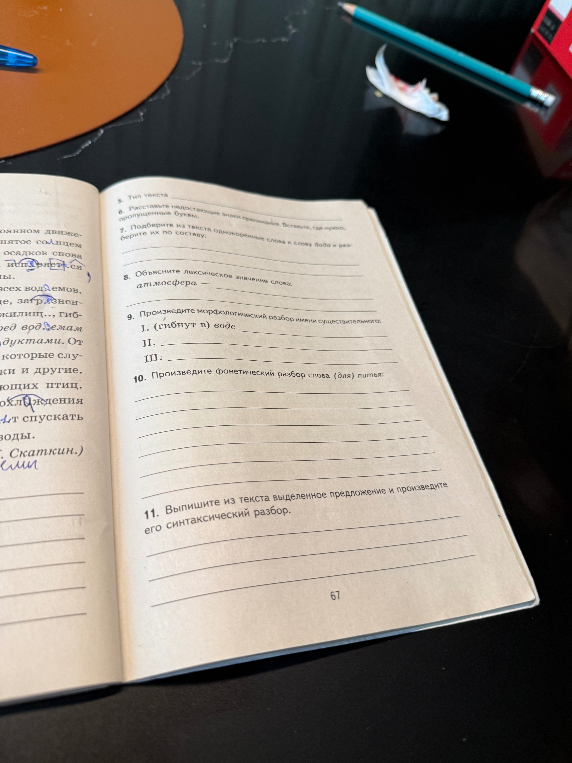 оянном движе-
нятое солнцем
осадков снова
испаряется
ны.
всех водоемов.
е, загрязнен-
жилищ.., гиб-
ред водоемам
дуктами. От
которые слу-
ки и другие.
ющих птиц.
охлаждения
ет спускать
воды.
. Скаткин.)
5. Тип текста
6. Расставьте недостающие знаки препинания. Вставьте, где нужно,
пропущенные буквы.
7. Подберите из текста однокоренные слова к слову вода и раз-
берите их по составу.
8. Объясните лексическое значение слова:
атмосфера —
9. Произведите морфологический разбор имени существительного:
I. (гибнут в) воде
II.
III.
10. Произведите фонетический разбор слова (для) питья:
11. Выпишите из текста выделенное предложение и произведите
его синтаксический разбор.
67